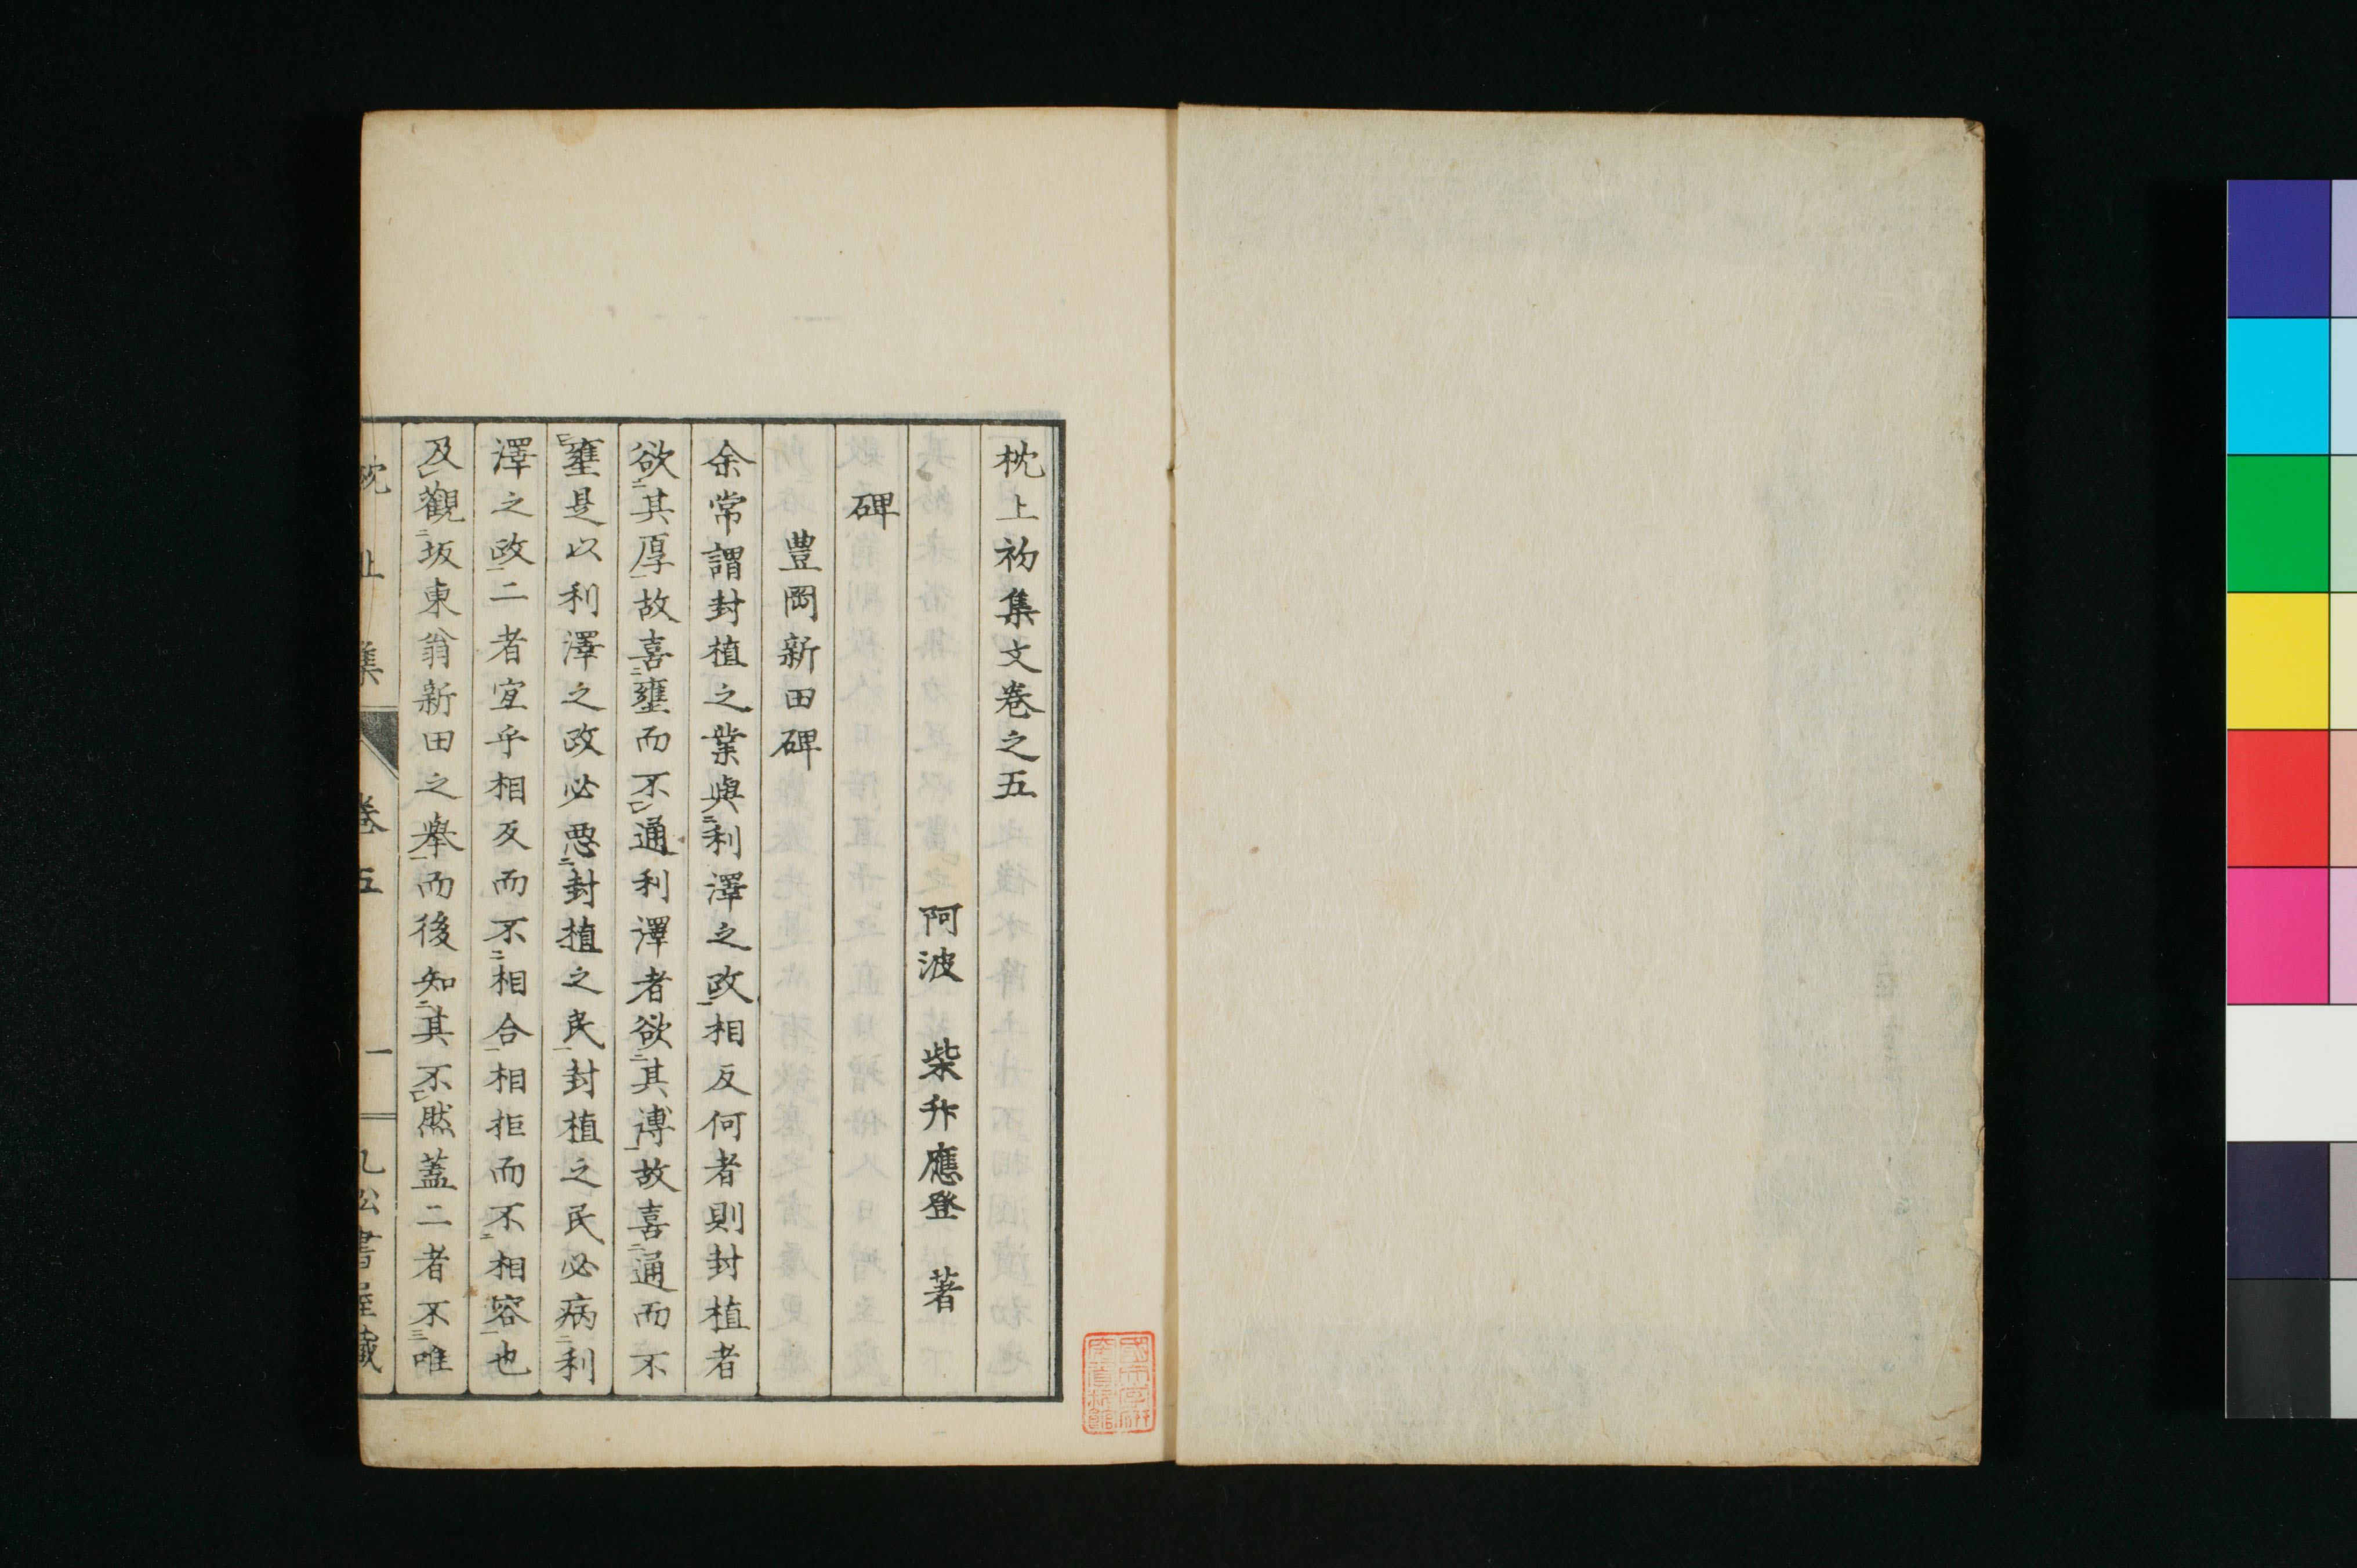 枕上初集文卷之五
阿波 柴升應登 著
碑
豊岡新田碑
余常謂封植之業與二利澤之政一相反何者則封植者
欲二其厚一故喜二壅而不一レ通利澤者欲二其溥一故喜二通而不一レ
壅是以利澤之政必惡二封植之民一封植之民必病二利
澤之政一二者宜乎相反而不二相合一相拒而不二相容一也
及レ觀二坂東翁新田之舉一而後知二其不一レ然蓋二者不三唯
枕上集 卷五 一 九松書屋藏